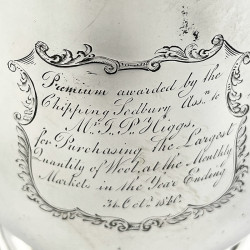 Premium awarded by the
Chipping Sodbury Assn. to
Mr. J. P. Higgs,
for Purchasing the Largest
Quantity of Wool, at the Monthly
Markets in the Year Ending
31 Octr. 1840.